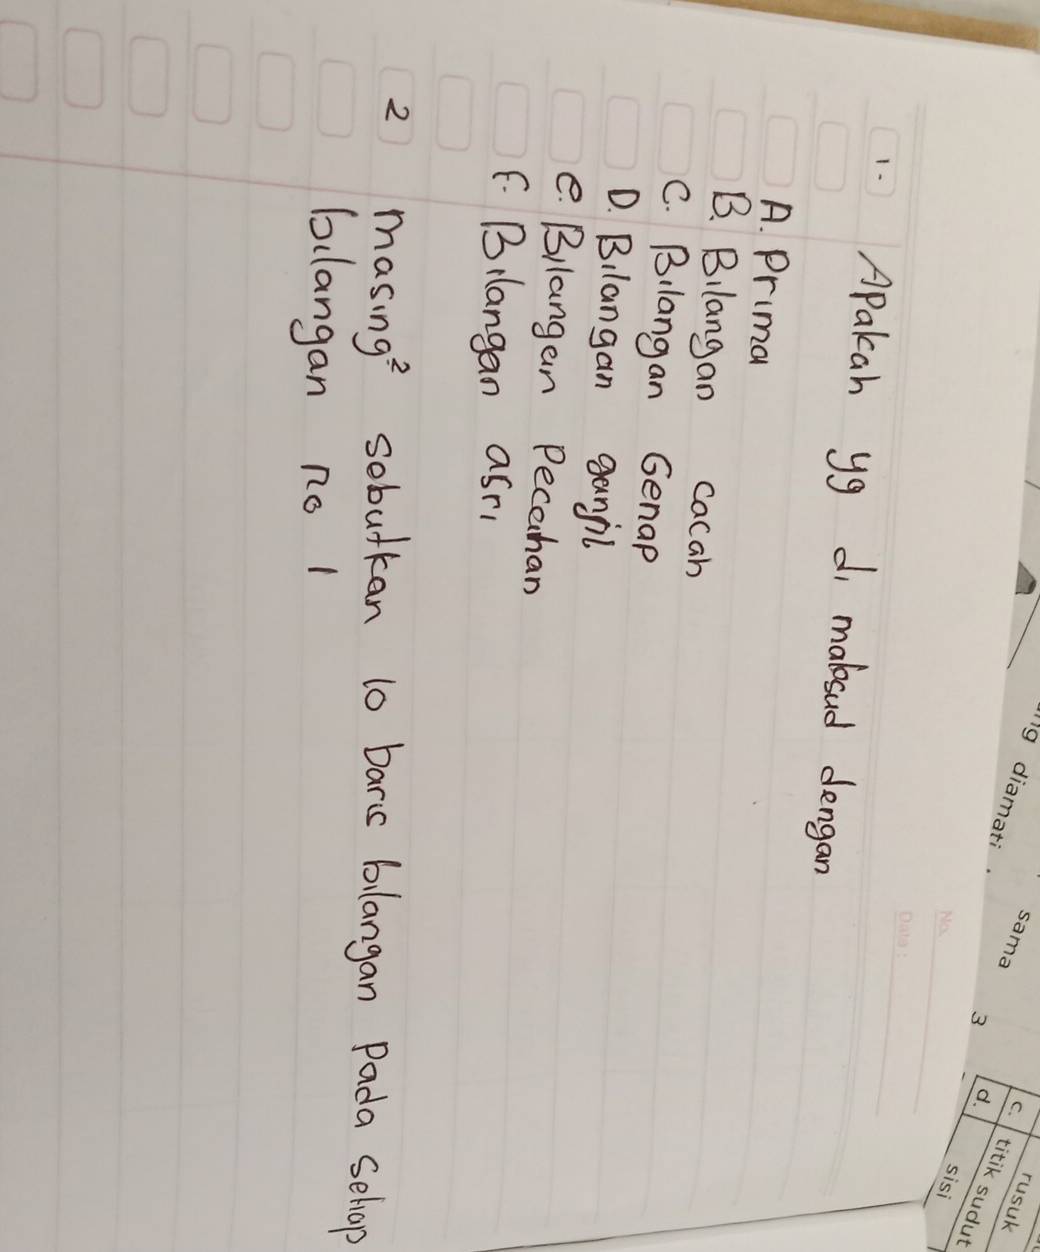 ng diamati.
sama
3
c. rusuk
d. titik sudut
sisi
No.
Date :
1. Apakah yg di maksud dengan
A. Prima
B. Bilangan cacah
C. Bilangan Genap
D. Bilangan ganjil
e. Bilangan Pecahan
F. Bilangan asri
2 masing² sebutkan 10 baris bilangan Pada setiap
bilangan no 1